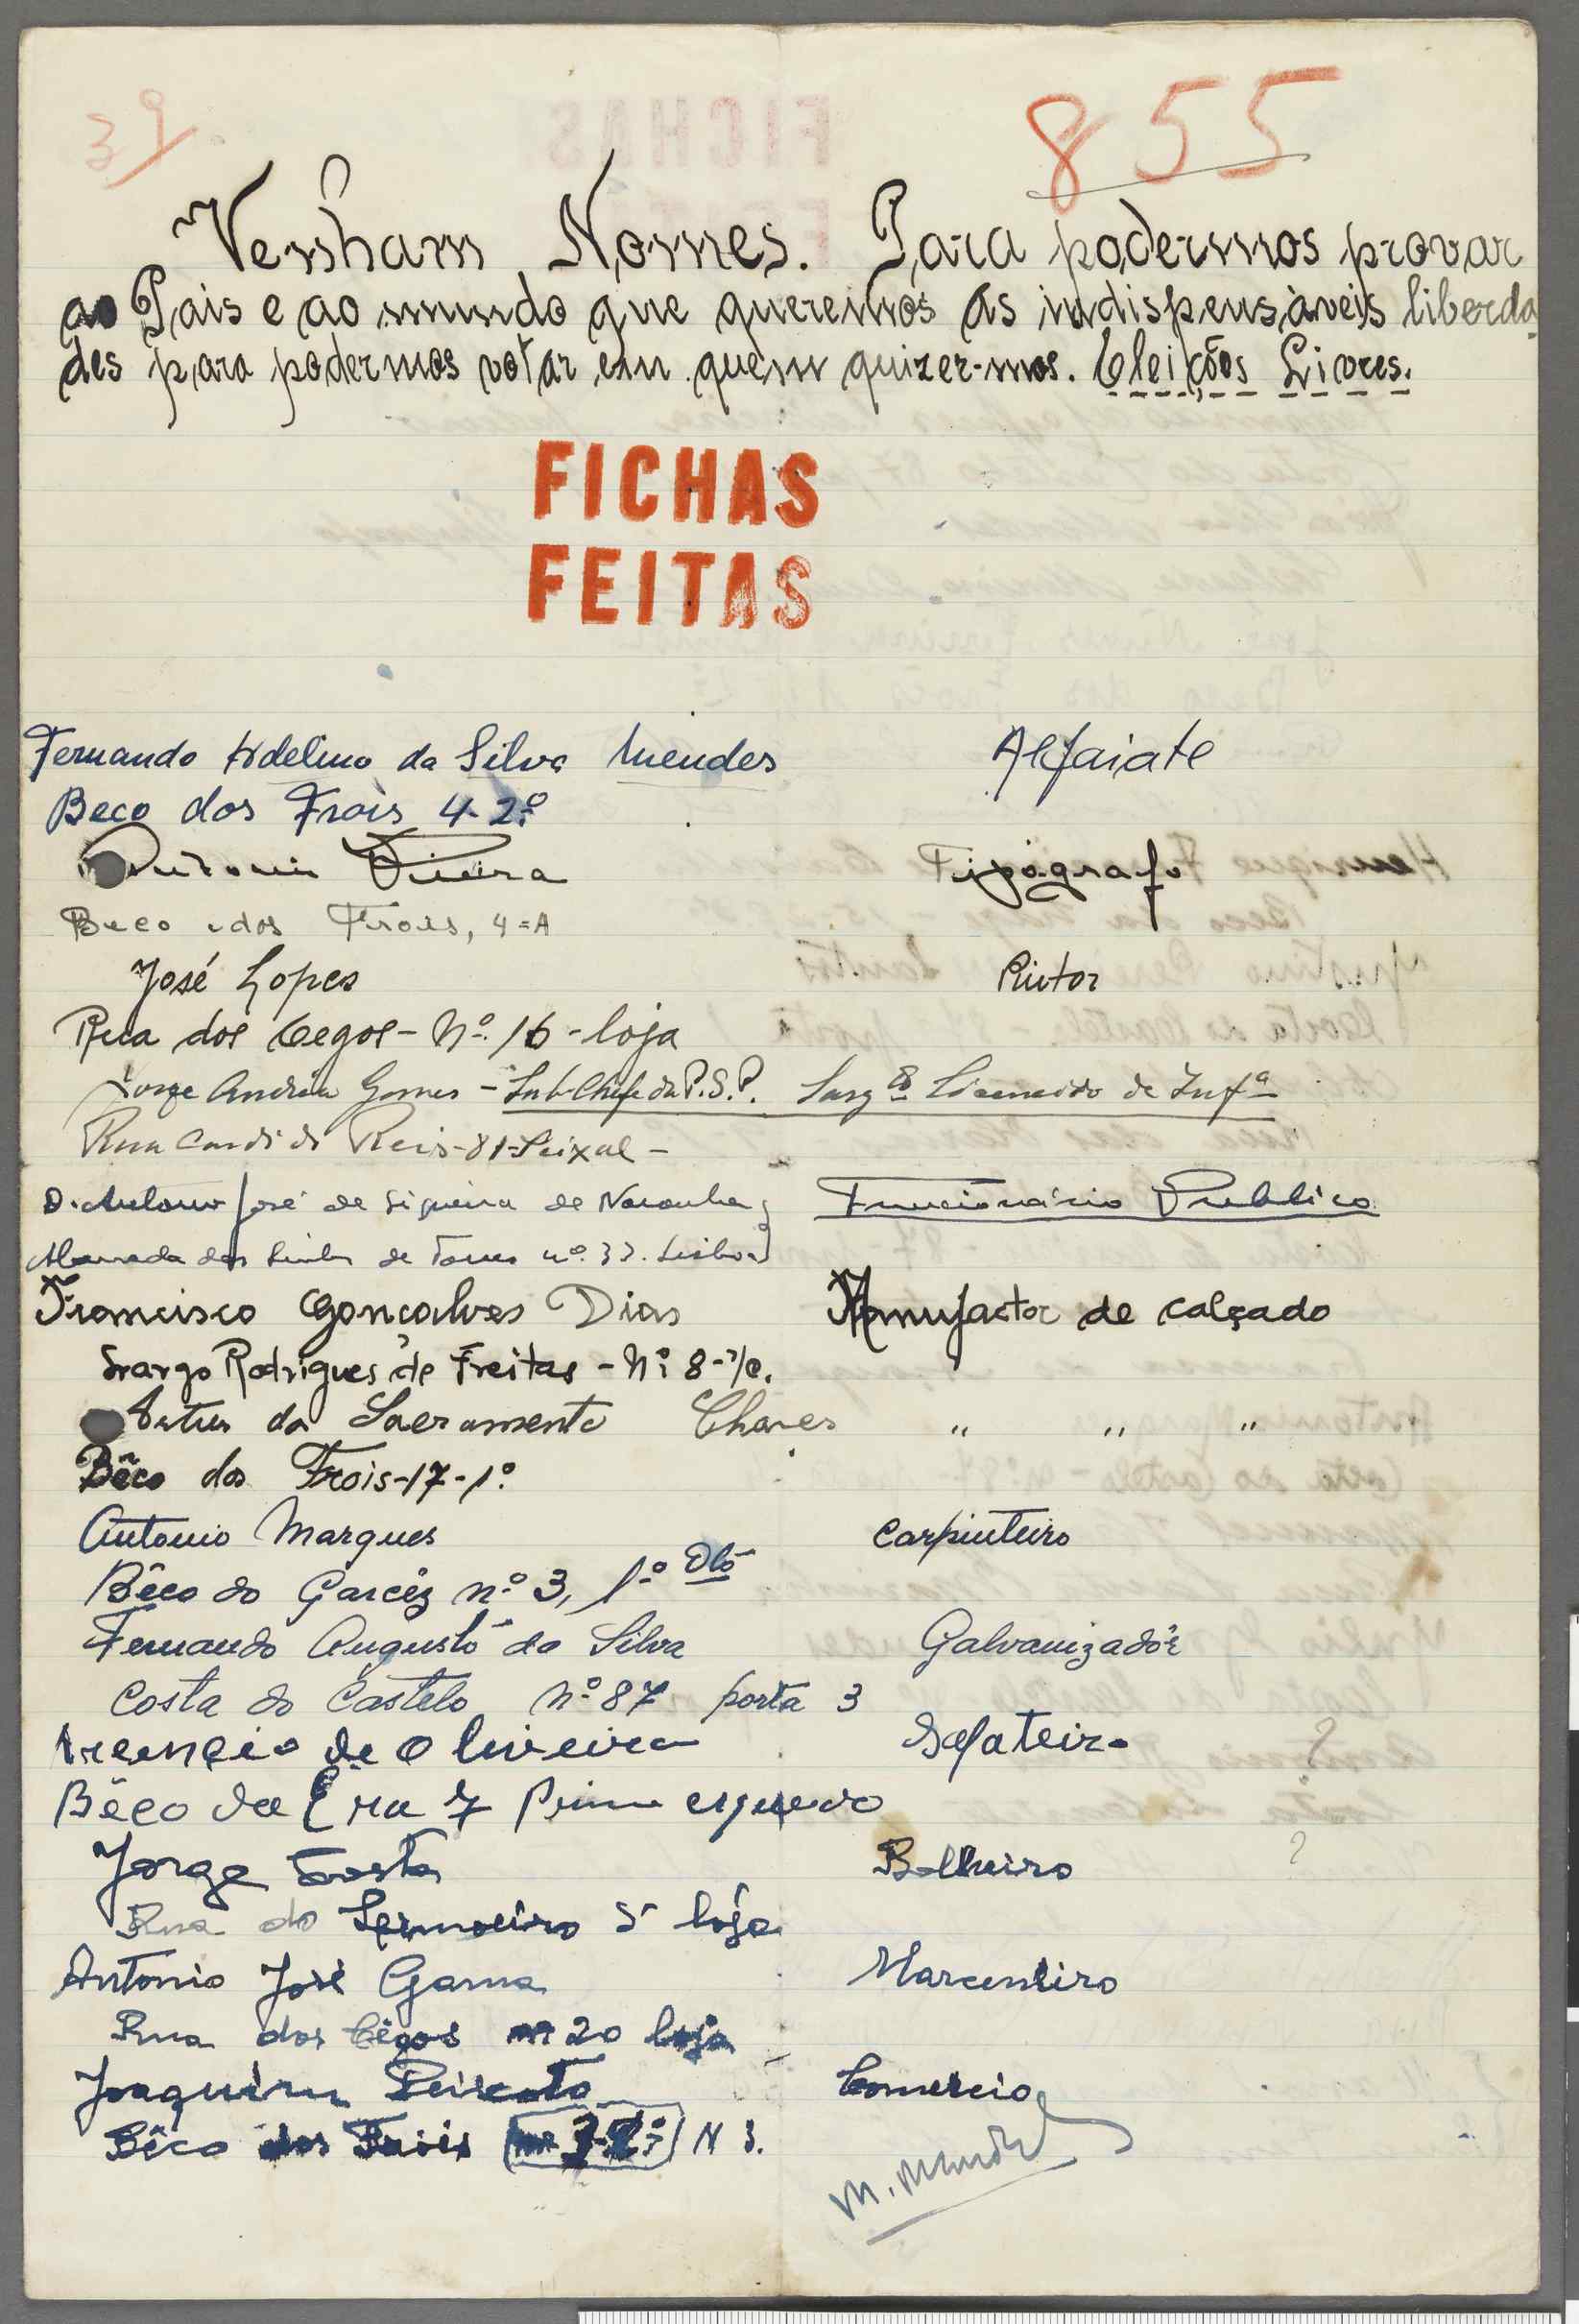 39
855
Venham Nomes. Para podermos provar
ao Pais e ao mundo que queremos as indispensàveis liberda
des para podermos votar em quem quizer-mos. Eleições Livres.
FICHAS
FEITAS
Fernando Adelino da Silva Mendes Alfaiate
Beco dos Frois 4-2º
Antonio Vieira Tipógrafo
Beco dos Frois, 4=A
José Lopes Pintor
Rua dos Cegos - Nº. 16 - loja
Jorge Gomes - Sub-Chefe da P.S.P. Sargº Licenceado de Infª
Rua Candido Reis-81-Seixal -
D. Antonio José de Siqueira de Noronha Funcionário Publico
Alameda das Linhas de Torres nº. 33. Lisboa
Francisco Gonçalves Dias Manufactor de calçado
Largo Rodrigues de Freitas - Nº 8-r/c.
Artur do Sacramento Chaves " " "
Bêco dos Frois-17-1º
Antonio Marques Carpinteiro
Bêco do Garcêz nº 3, 1º Dtº
Fernando Augusto da Silva Galvanizadôr
Costa do Castelo nº 87 porta 3
de Oliveira Sapateiro
Bêco da Era 7 Prim esquerdo
Jorge Costa ?
Rua do Salvador 5 loja
Antonio José Gama Marceneiro
Rua dos Cêgos nº 20 loja
Joaquim Peixoto Comercio
Bêco dos Frois N 3.
M. Mendes